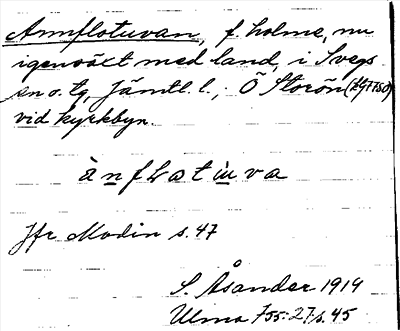 Annflotuvan, f. holme, nu
igenväxt med land, i Svegs
sn o. tg, Jämtl. l.; Ö Storön
vid kyrkbyn.
ànflotùva
Jfr Modin s. 47
S. Åsander 1919
Ulma 755:27 s. 45